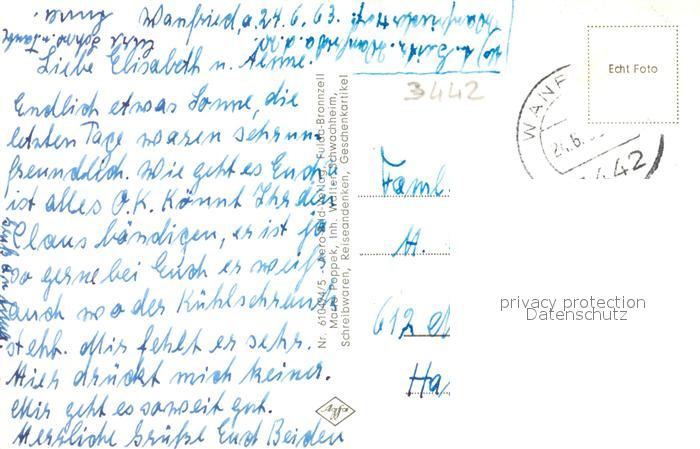 Wanfried, d. 24.6.63.
Liebe Elisabeth u. Änne.
Endlich etwas Sonne, die
letzten Tage waren sehr un-
freundlich. Wie geht es Euch
ist alles O.K. Könnt Ihr den
Claus bändigen, er ist ja
so gerne bei Euch er weiß
auch wo der Kühlschrank
steht. Mir fehlt er sehr.
Hier drückt mich keiner.
Mir geht es soweit gut.
Herzliche Grüße Euch Beiden
Nr. 610494/5 Aero-Bild-Verlag, Fulda-Bronnzell
Maria Poppek, Inh. Walter Schwachheim,
Schreibwaren, Reiseandenken, Geschenkartikel
Agfa
3442
Echt Foto
WANF
24.6.
Faml.
H.
612
Ha
privacy protection
Datenschutz